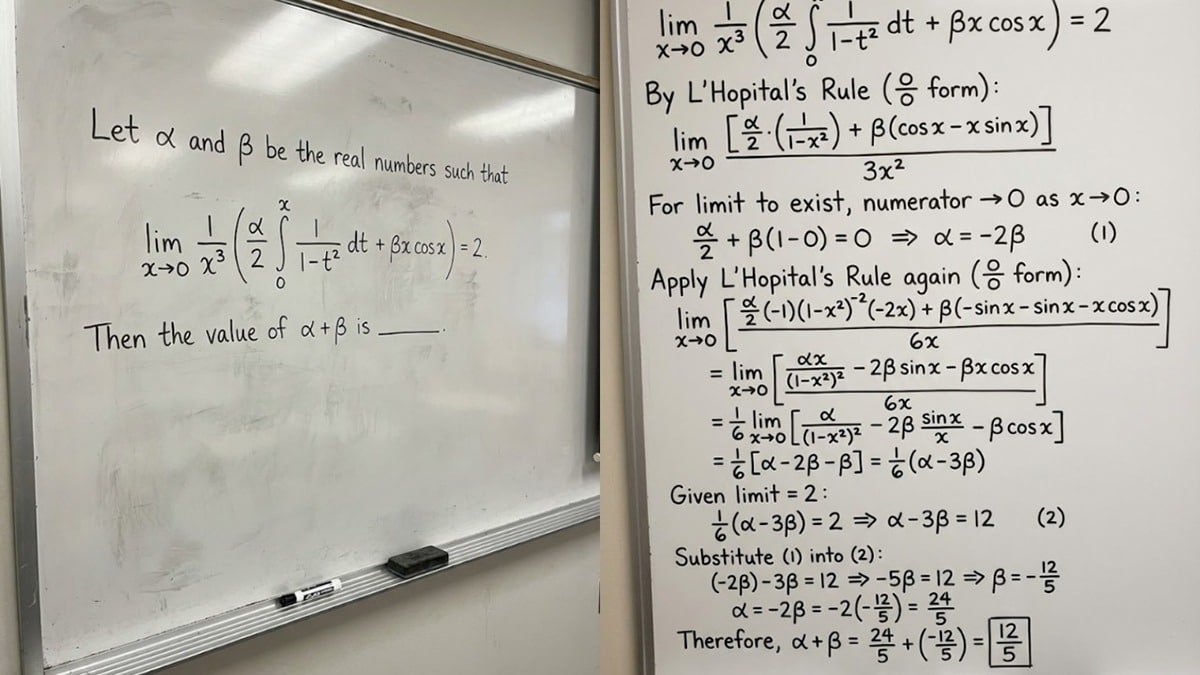 Let α and β be the real numbers such that
lim x→0 1/x³ (α/2 ∫₀ˣ 1/(1-t²) dt + βx cos x) = 2.
Then the value of α+β is ______.
lim x→0 1/x³ (α/2 ∫₀ 1/(1-t²) dt + βx cos x) = 2
By L'Hopital's Rule (0/0 form):
lim x→0 [α/2·(1/(1-x²)) + β(cos x - x sin x)] / 3x²
For limit to exist, numerator → 0 as x→0:
α/2 + β(1-0) = 0 ⇒ α = -2β (1)
Apply L'Hopital's Rule again (0/0 form):
lim x→0 [α/2 (-1)(1-x²)⁻²(-2x) + β(-sin x - sin x - x cos x) / 6x]
= lim x→0 [αx/(1-x²)² - 2β sin x - βx cos x] / 6x
= 1/6 lim x→0 [α/(1-x²)² - 2β sin x/x - β cos x]
= 1/6 [α - 2β - β] = 1/6 (α - 3β)
Given limit = 2:
1/6 (α - 3β) = 2 ⇒ α - 3β = 12 (2)
Substitute (1) into (2):
(-2β) - 3β = 12 ⇒ -5β = 12 ⇒ β = -12/5
α = -2β = -2(-12/5) = 24/5
Therefore, α + β = 24/5 + (-12/5) = 12/5